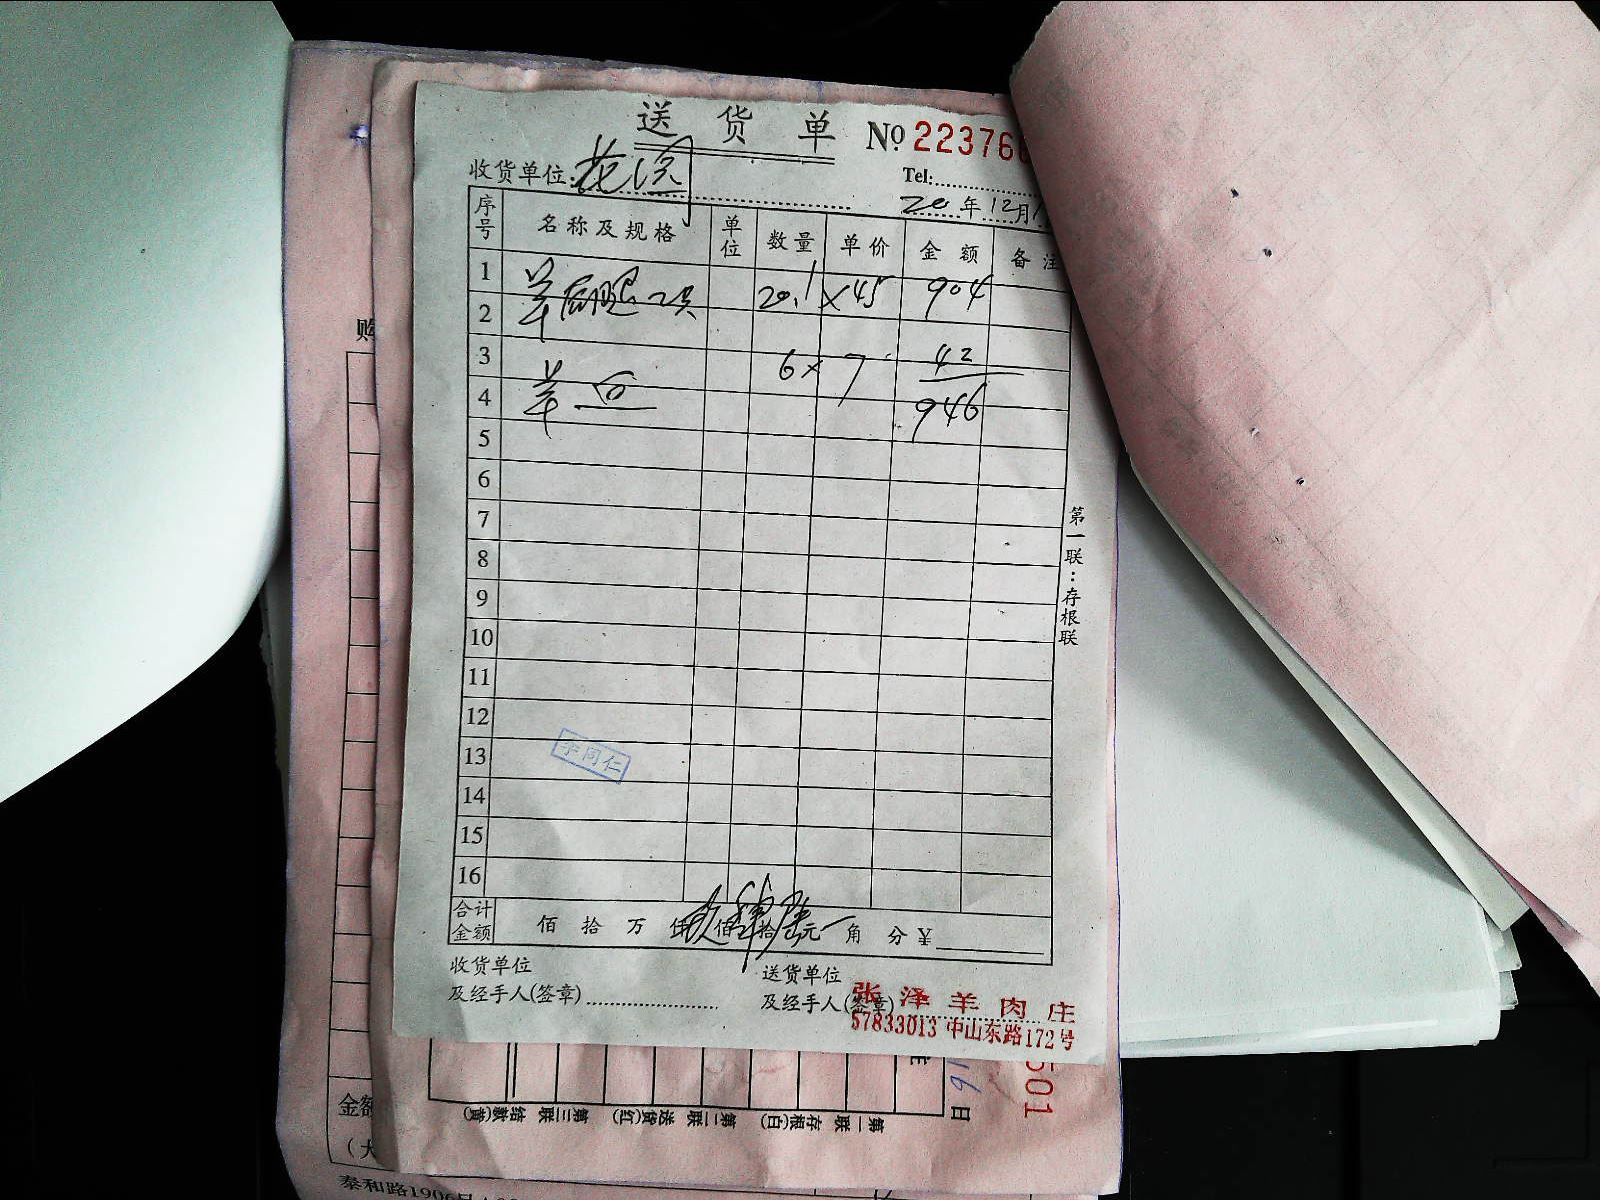 送货单 № 22376
收货单位:
Tel:
20年12月
序号 名称及规格 单位 数量 单价 金额 备注
1 羊后腿 20.1 ×45 904
2
3 羊血 6× 7 42
4 946
5
6
7
8
9
10
11
12
13
14
15
16
李同仁
合计金额 佰 拾 万 仟玖佰肆拾陆元 角 分 ¥
第一联:存根联
收货单位
及经手人(签章)
送货单位
及经手人(签章)
张泽羊肉庄
57833013 中山东路172号
购
金额
(大
泰和路1906号
501
日
第一联 存根(白) 第二联 送货(红) 第三联 结数(黄)